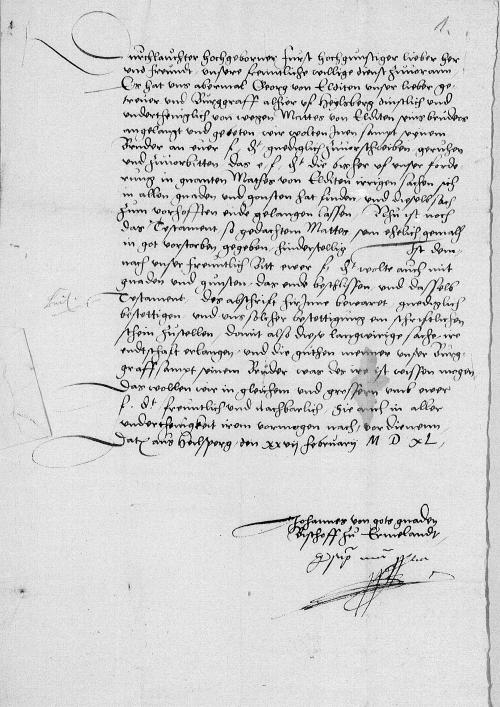 1.
Durchlauchter hochgeborner furst hochgunstiger lieber her
und freundt, unsere freuntliche willige dienst zuuorann
Es hat uns abermal Georg von Elditen unser lieber ge-
treuer und Burggraff alhier uf Heylsberg dinstlich und
undertheniglich von wegen Mattes von Elditen seins bruders
angelangt und gebeten wir wolten Inen sampt seinem
Bruder an ewer f. dt gnediglich zuuorschreiben geruhen
und zuuorbitten, das e. f. dt die bisher uf unser forde
rung in gnanten Mattes von Elditen irrigen sachen sich
in allen gnaden und gonsten hat finden und dieselb sach
zum vorhofften ende gelangen lassen. Nhu ist noch
das Testament so gedachtem Mattes sein ehelich gemahl
in got vorstorben, gegeben, hinderstellig Ist dem-
nach unser freuntlich Bitt ewer f. dt wolte auch mit
gnaden und gunsten, das ende beschlissen und dasselb
Testament, des abschrift hirInne bewaret, gnediglich
bestettigen, und uns solcher bestettigung ein schriftlichen
schein zustellen, damit also diese langwirige sache ire
endtschaft erlangen, und die guthen menner unser Burg-
graff sampt seinem Bruder was der ire ist wissen mogen,
Das wollen wir in gleichem und grossern umb ewer
f. dt freuntlich und nachbarlich, Sie auch in aller
underthenigkeit irem vormogen nach, vordienenn
Datum aus Heilsperg, den xxvij Februarij M D XL,
Johannes von gots gnaden
Bischoff zu Ermelandt,